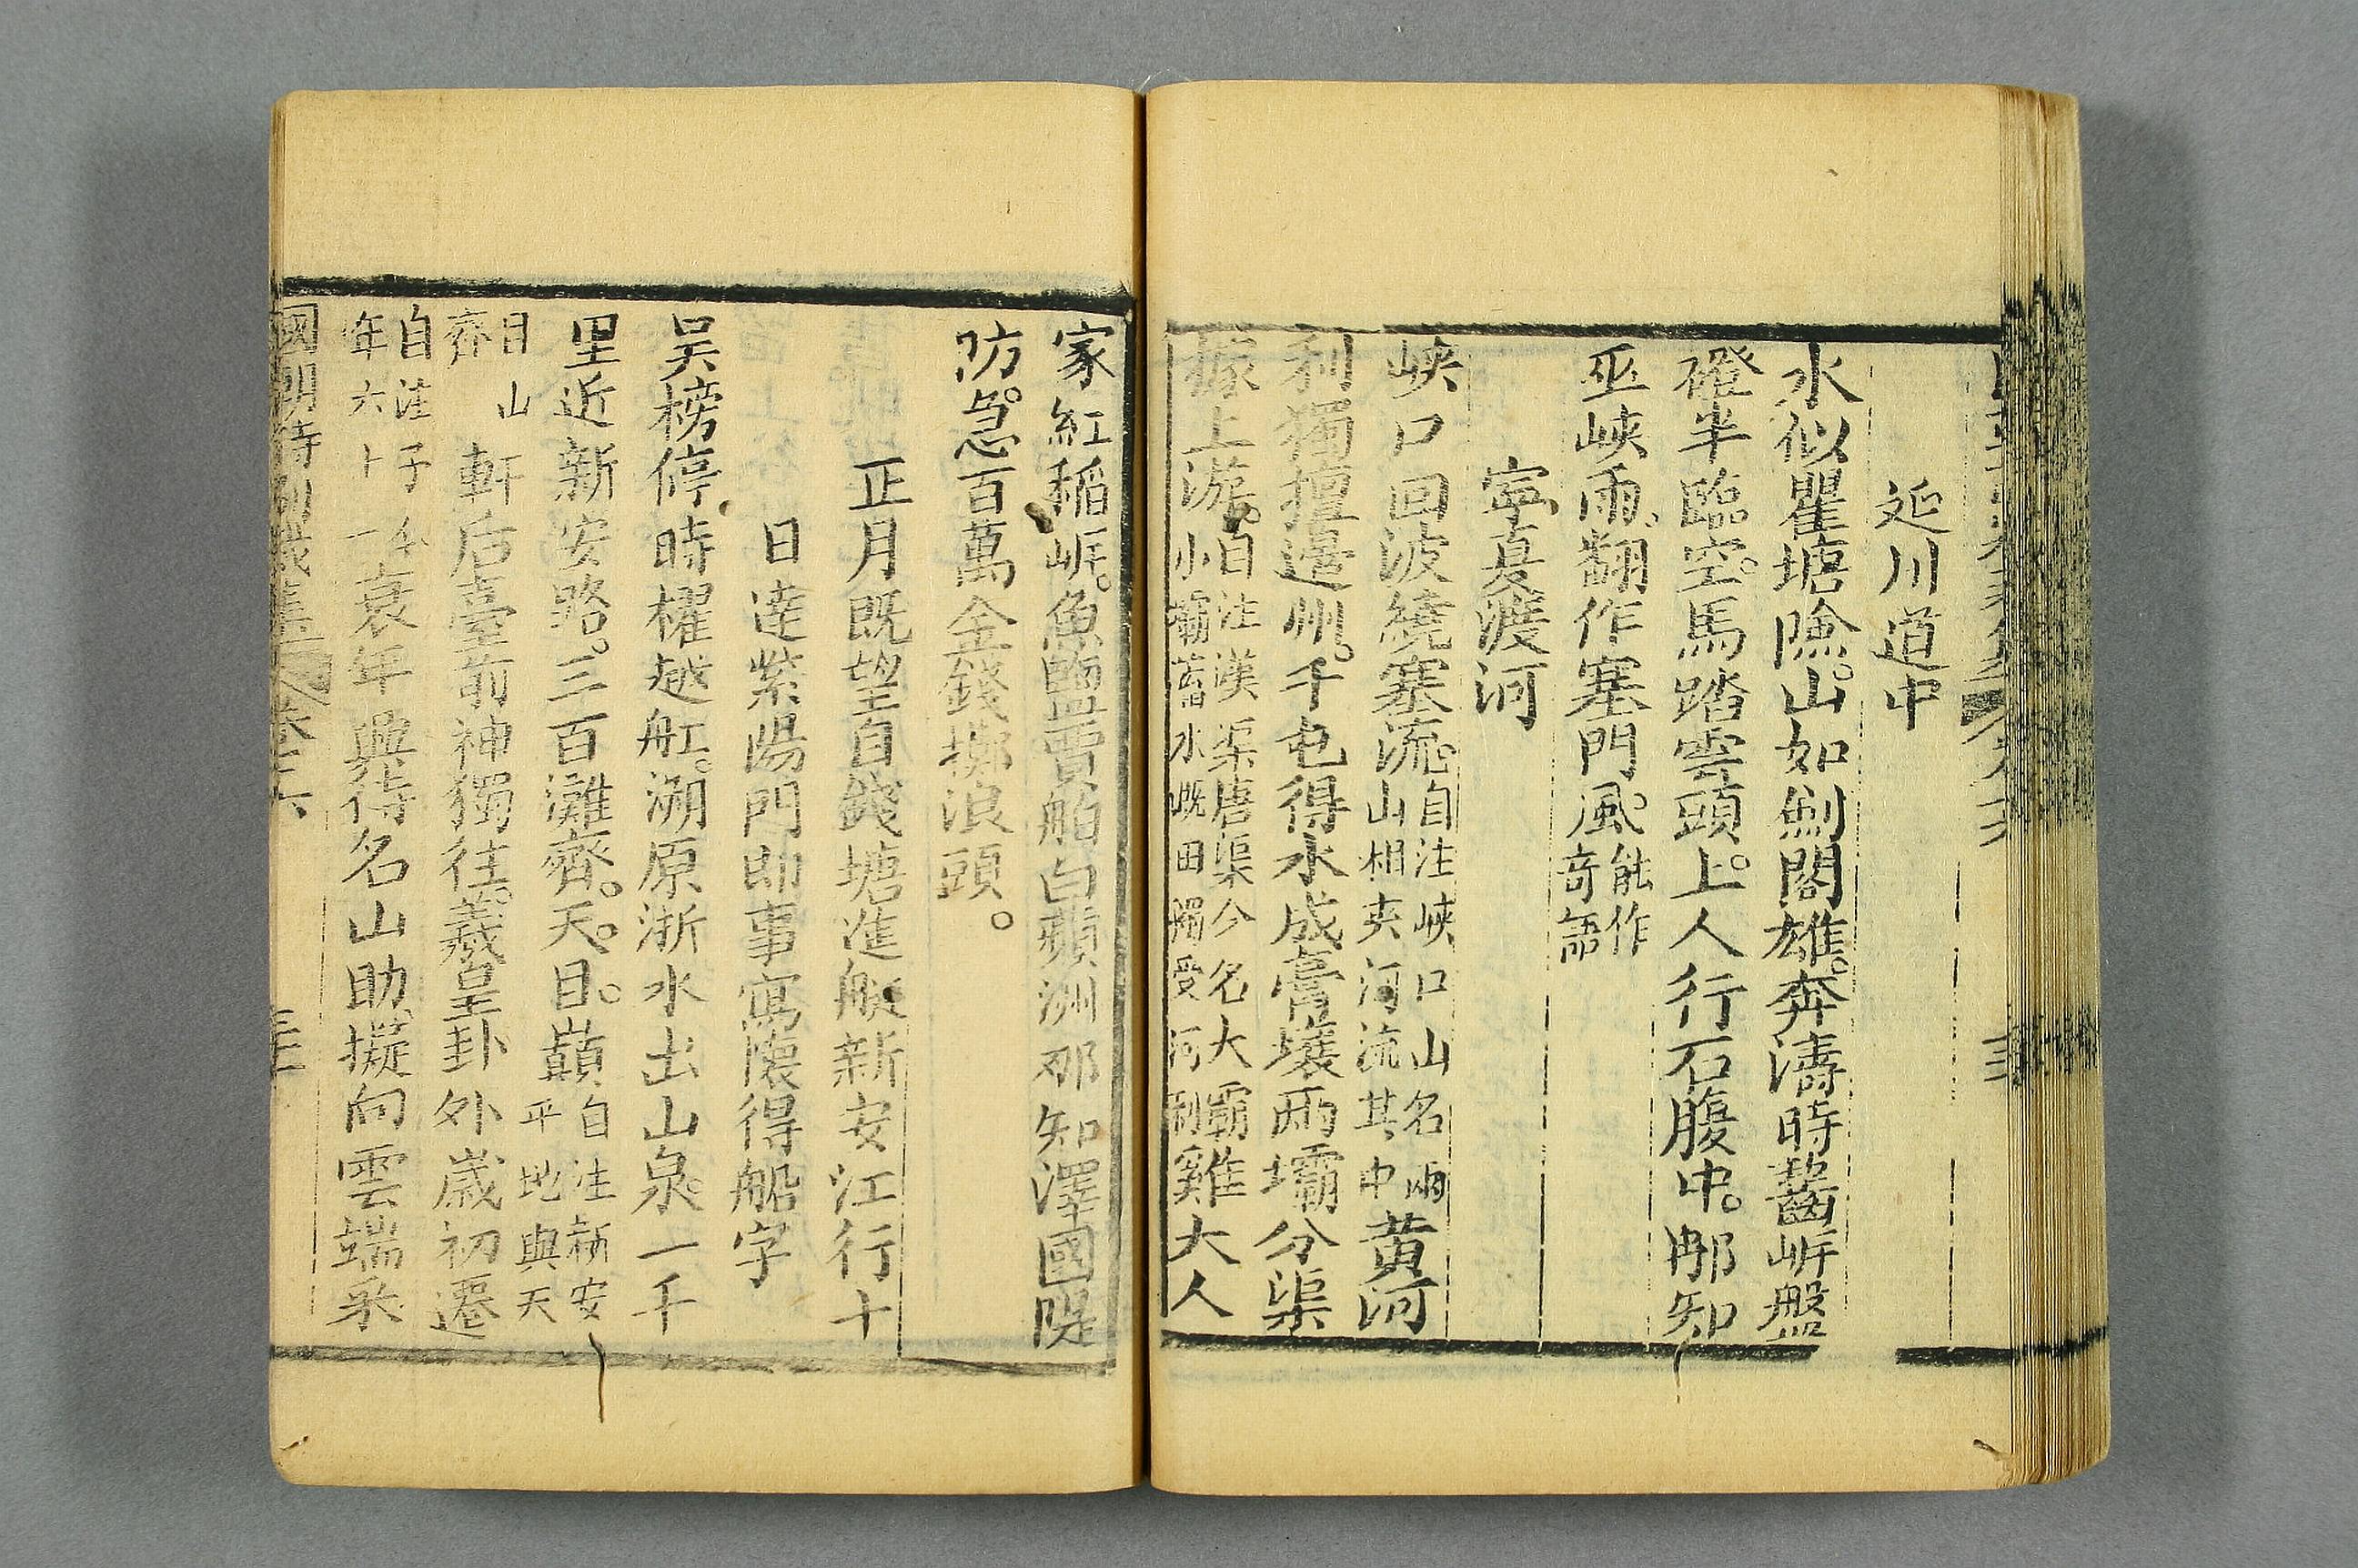 延川道中
水似瞿塘險。山如劍閣雄。奔濤時齧岍盤
磴半臨空。馬踏雲頭上。人行石腹中。那知
巫峽雨。翻作塞門風。能作奇語
寧夏渡河
峽口回波繞塞流。自注峽口山名兩山相夾河流其中黃河
利獨擅邊州。千屯得水成膏壤兩壩分渠
據上游。自注漢渠唐渠今名大霸小壩蓄水溉田獨受河利雞犬人
家紅稻岍。魚鹽賈舶白蘋洲那知澤國隄
防急。百萬金錢擲浪頭。
正月既望自錢塘進艇新安江行十
日達紫陽門即事寫懷得船字
吴榜停時櫂越舡。溯原浙水出山泉。一千
里近新安路。三百灘齊。天。目。巔自注新安平地與天
目山齊軒后臺前神獨往。羲皇卦外歲初遷
自注予今年六十一衰年興得名山助擬向雲端采
國朝詩別裁集 卷二六 三三